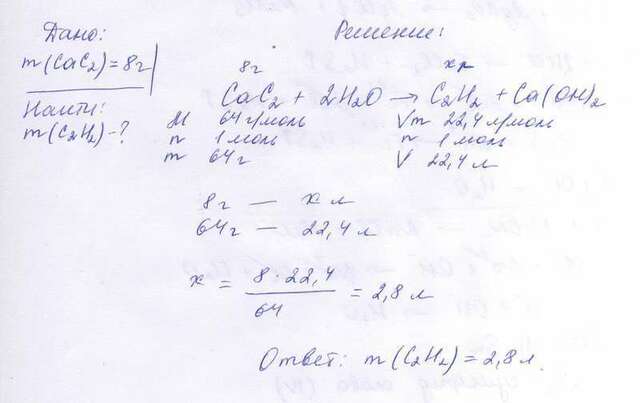 Дано:
m(CaC2)=8г
Найти:
m(C2H2)-?
Решение:
8г хл
CaC2 + 2H2O → C2H2 + Ca(OH)2
M 64 г/моль Vm 22,4 л/моль
n 1 моль n 1 моль
m 64 г V 22,4 л
8г — х л
64г — 22,4 л
х = 8·22,4
64
= 2,8 л
Ответ: m(C2H2)=2,8л.